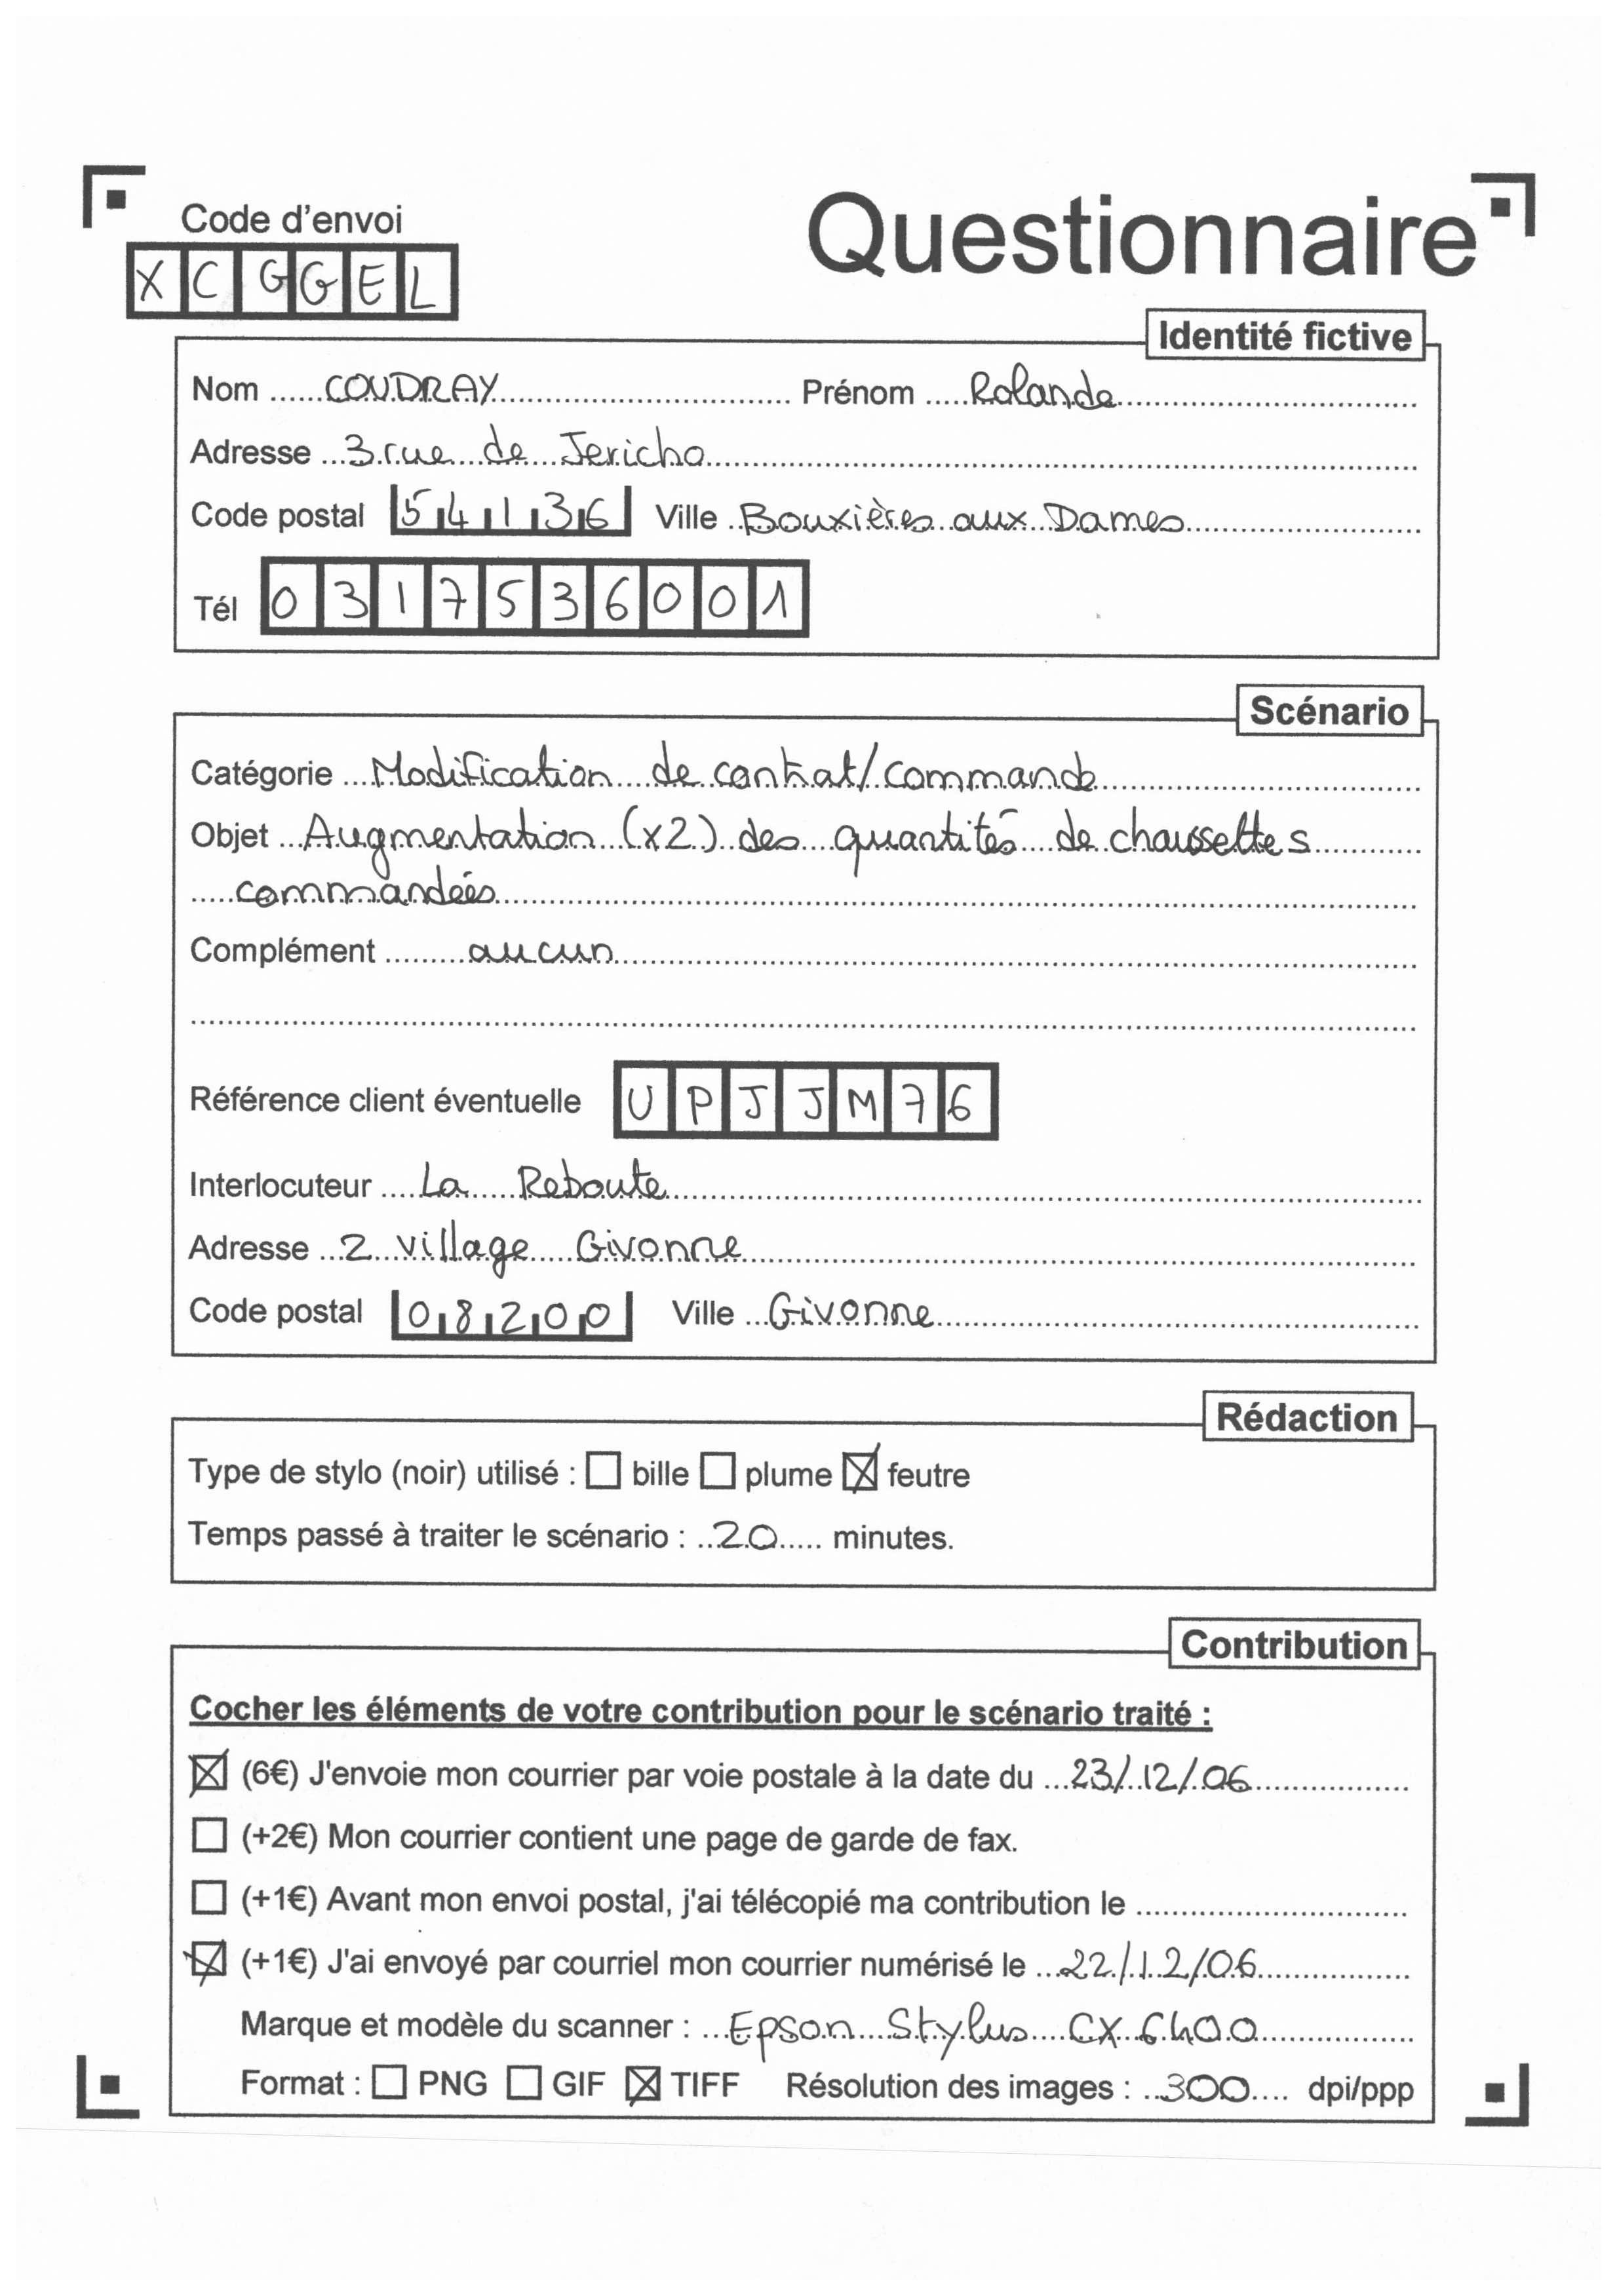 Code d'envoi
XCGGEL
Questionnaire
Identité fictive
Nom COUDRAY Prénom Rolande
Adresse 3 rue de Jericho
Code postal 54136 Ville Bouxières aux Dames
Tél 0317536001
Scénario
Catégorie Modification de contrat/commande
Objet Augmentation (x2) des quantités de chaussettes
commandées
Complément aucun
Référence client éventuelle UPJJM76
Interlocuteur La Reboute
Adresse 2 village Givonne
Code postal 08200 Ville Givonne
Rédaction
Type de stylo (noir) utilisé : ☐ bille ☐ plume ☒ feutre
Temps passé à traiter le scénario : 20 minutes.
Contribution
Cocher les éléments de votre contribution pour le scénario traité :
☒ (6€) J'envoie mon courrier par voie postale à la date du 23/12/06
☐ (+2€) Mon courrier contient une page de garde de fax.
☐ (+1€) Avant mon envoi postal, j'ai télécopié ma contribution le
☒ (+1€) J'ai envoyé par courriel mon courrier numérisé le 22/12/06
Marque et modèle du scanner : Epson Stylus CX 6400
Format : ☐ PNG ☐ GIF ☒ TIFF Résolution des images : 300 dpi/ppp